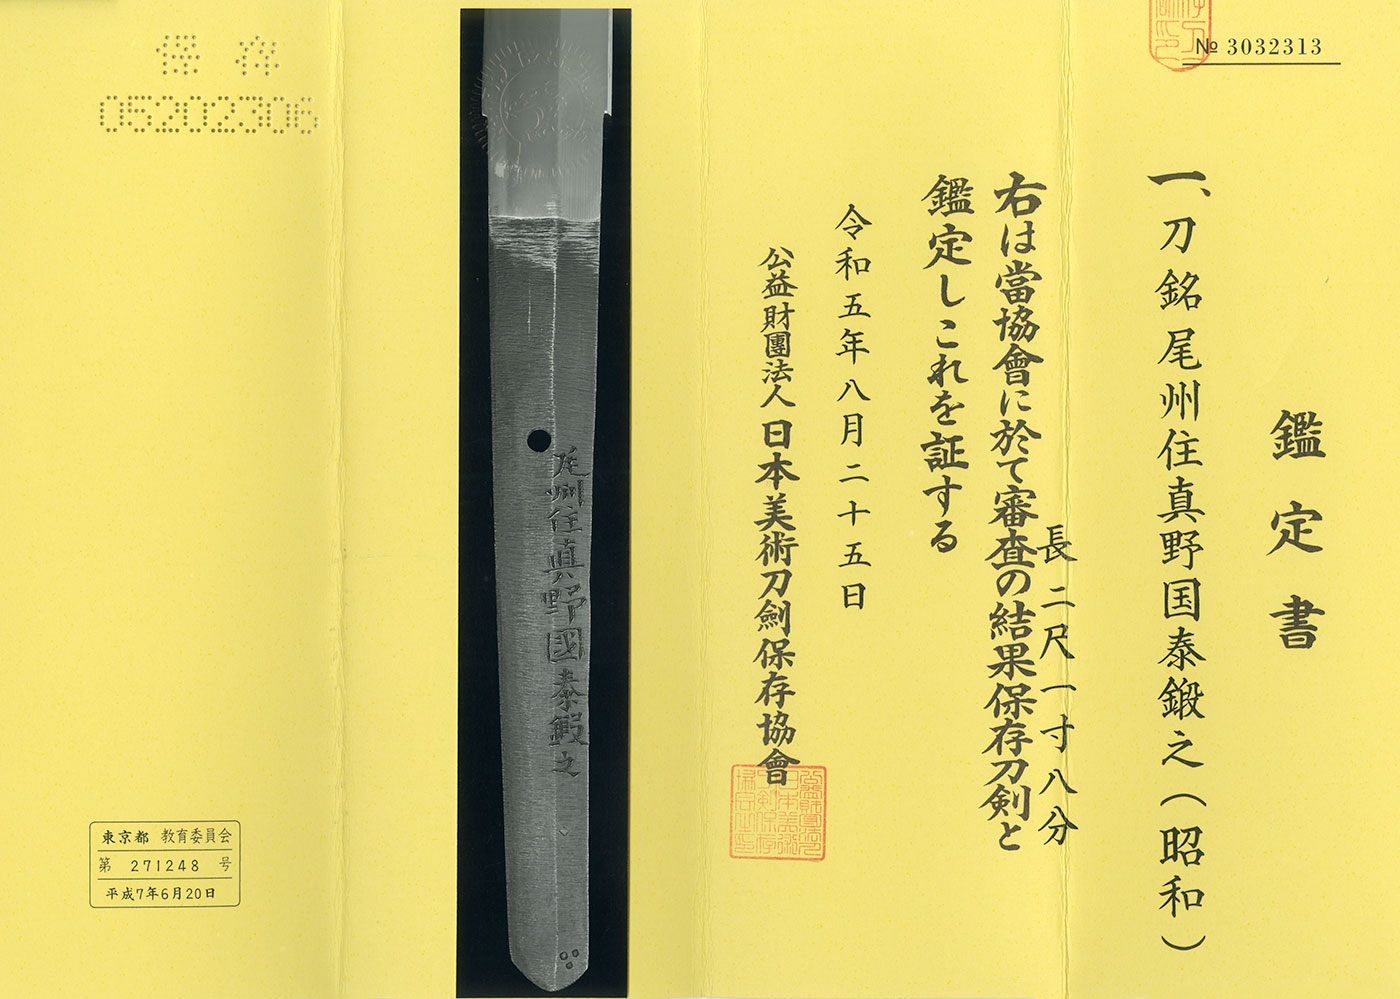 № 3032313
鑑定書
一、刀銘尾州住真野国泰鍛之(昭和)
長二尺一寸八分
右は當協會に於て審査の結果保存刀剣と
鑑定しこれを証する
令和五年八月二十五日
公益財團法人日本美術刀劍保存協會
尾州住眞野國泰鍛之
保存
05202306
東京都 教育委員会
第 271248 号
平成7年6月20日